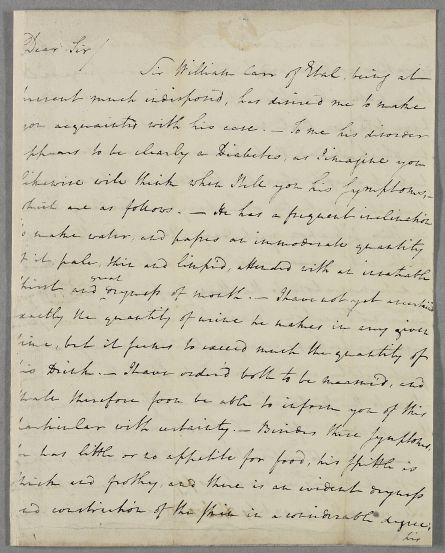 Dear Sir/
Sir William Carr of Etal, being at
present much indisposed, has desired me to make
you acquainted with his case. — To me his disorder
appears to be clearly a Diabetes, as I imagine you
likewise will think when I tell you his Symptoms,
which are as follows. — He has a frequent inclination
to make water, and passes an immoderate quantity
of it, pale, thin and limpid, attended with an insatiable
thirst and great dryness of mouth. — I have not yet ascertained
exactly the quantity of urine he makes in any given
time, but it seems to exceed much the quantity of
his Drink. — I have order'd both to be measured, and
shall therefore soon be able to inform you of this
particular with certainty. — Besides these Symptoms,
he has little or no appetite for food, his Spittle is
thick and frothy, and there is an evident dryness
and constriction of the Skin in a considerable degree;
his